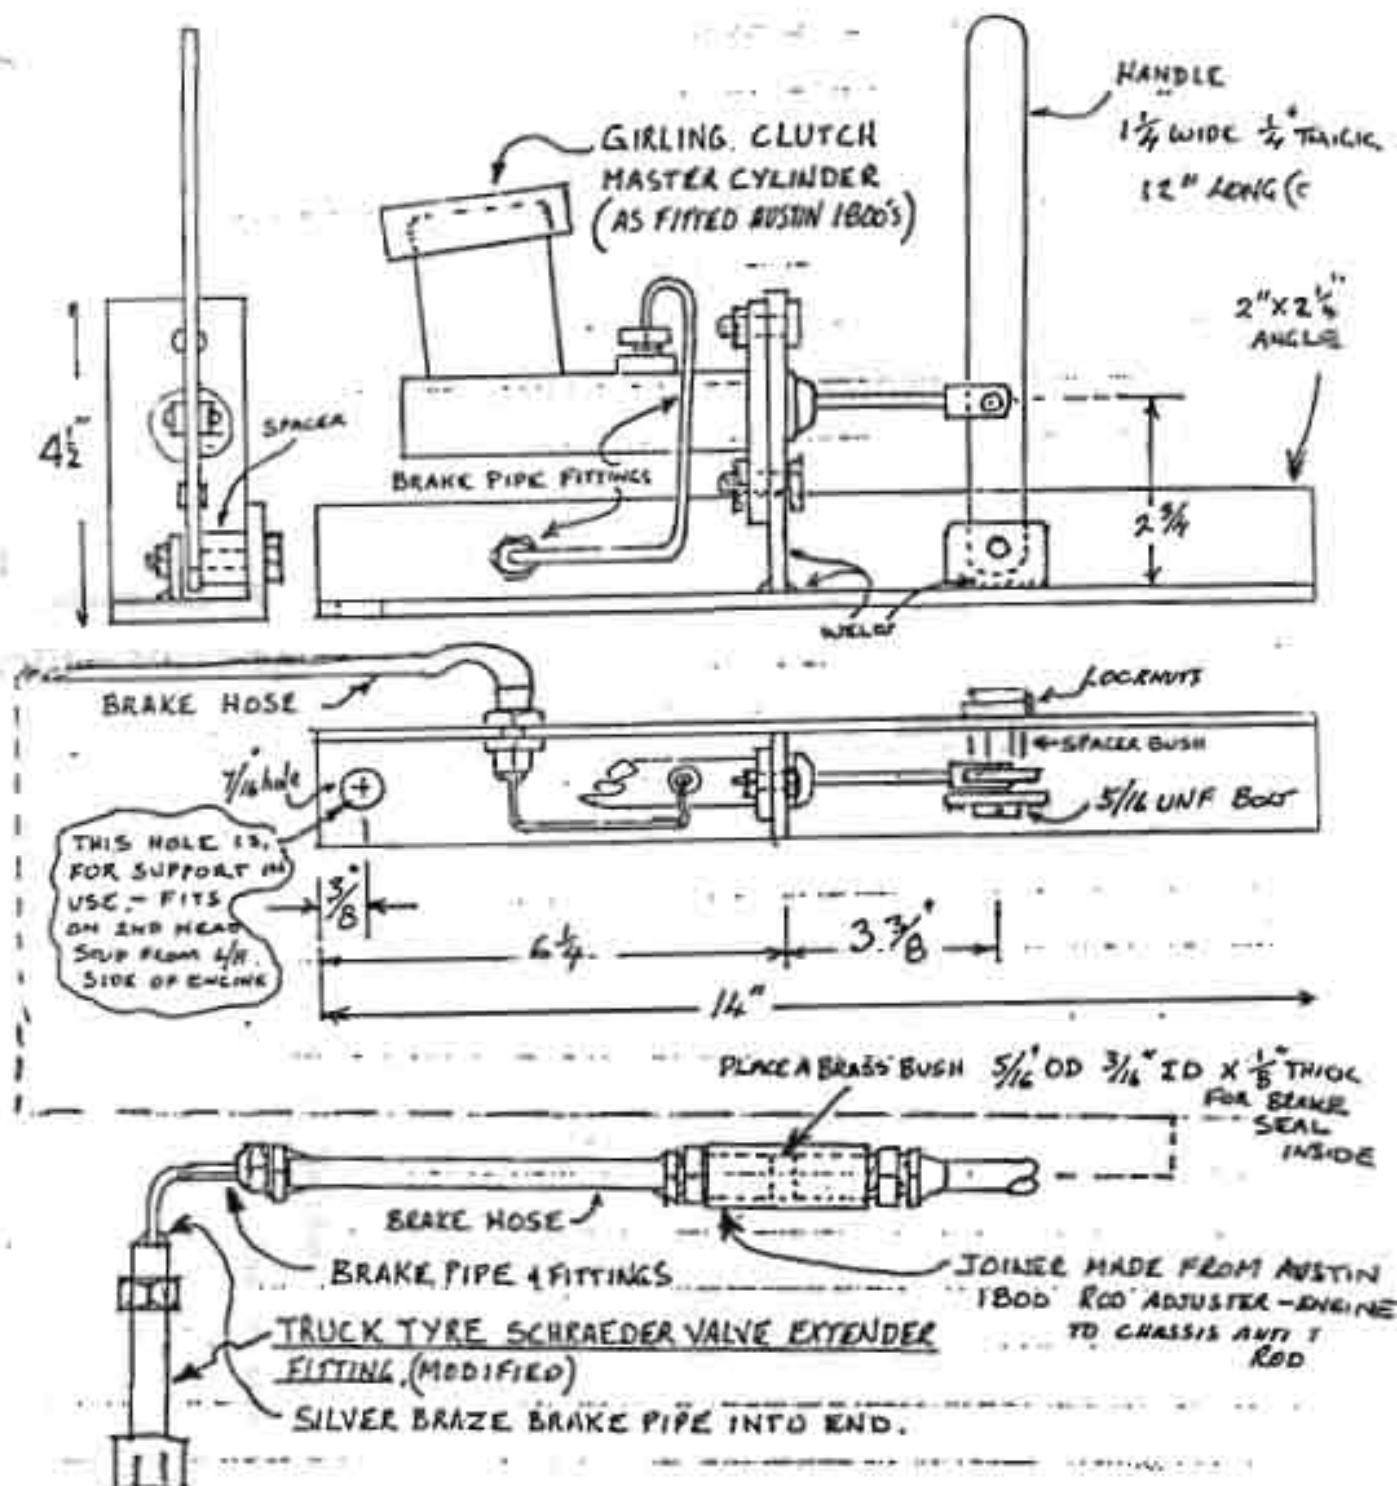 HANDLE
1 1/4" WIDE 1/4" THICK
12" LONG (C
GIRLING CLUTCH
MASTER CYLINDER
(AS FITTED AUSTIN 1800's)
2" X 2 1/4"
ANGLE
4 1/2"
SPACER
BRAKE PIPE FITTINGS
2 3/4
WELDS
BRAKE HOSE
LOCKNUTS
SPACER BUSH
5/16 UNF BOLT
7/16" hole
THIS HOLE IS
FOR SUPPORT IN
USE - FITS
ON 2ND HEAD
STUD FROM L/H
SIDE OF ENGINE
3/8"
6 1/4
3.3/8"
14"
PLACE A BRASS BUSH 5/16" OD 3/16" ID X 1/8" THICK
FOR BRAKE
SEAL
INSIDE
BRAKE HOSE
BRAKE PIPE & FITTINGS
JOINER MADE FROM AUSTIN
1800 ROD ADJUSTER - ENGINE
TO CHASSIS ANTI T
ROD
TRUCK TYRE SCHRAEDER VALVE EXTENDER
FITTING. (MODIFIED)
SILVER BRAZE BRAKE PIPE INTO END.